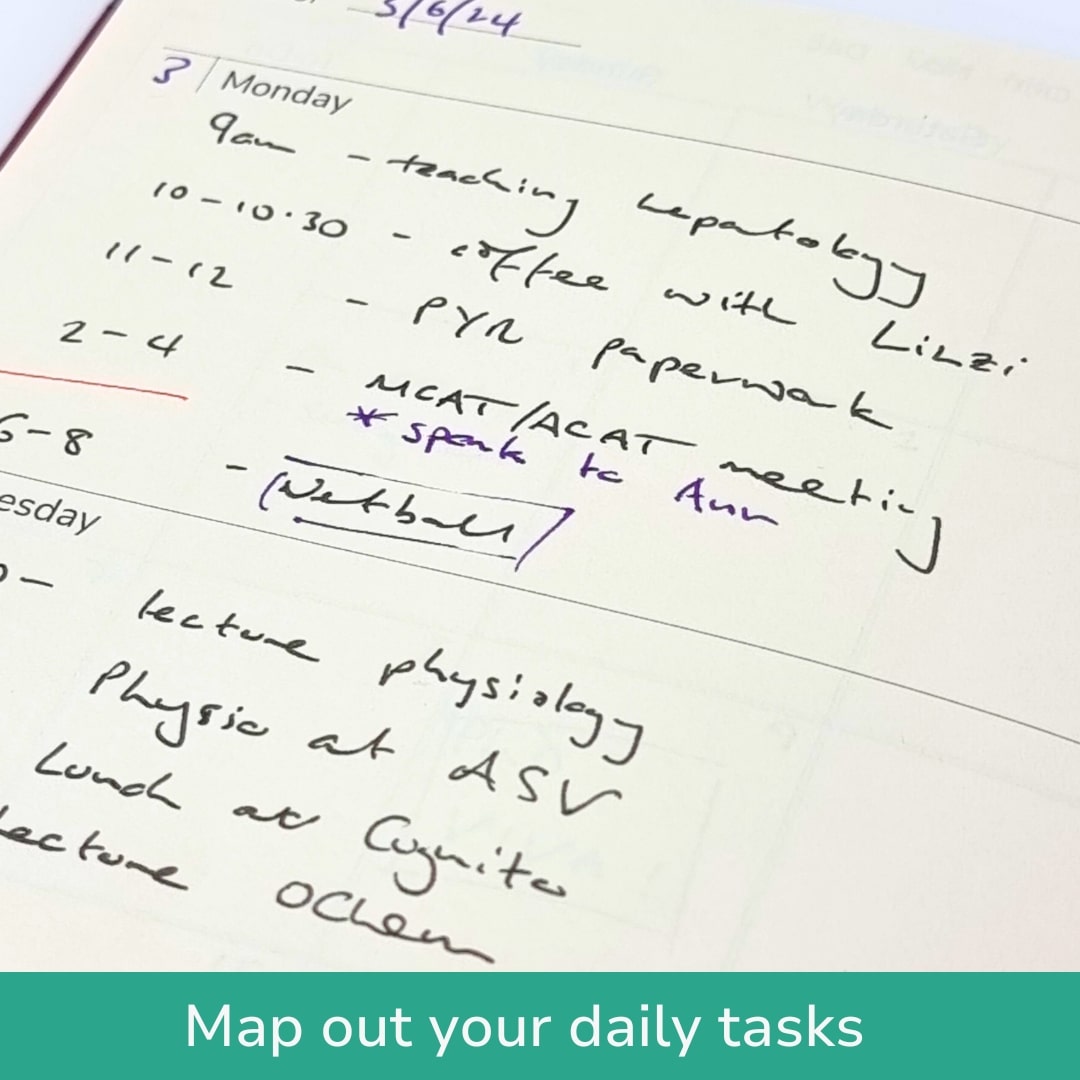 3/6/24
3 Monday
9am - teaching hepatology
10-10.30 - coffee with Linzi
11-12 - PYR paperwork
2-4 - MCAT/ACAT meeting
* speak to Ann
6-8 - Netball
esday
lecture physiology
Physio at ASV
Lunch at Cognito
lecture OChem
Map out your daily tasks